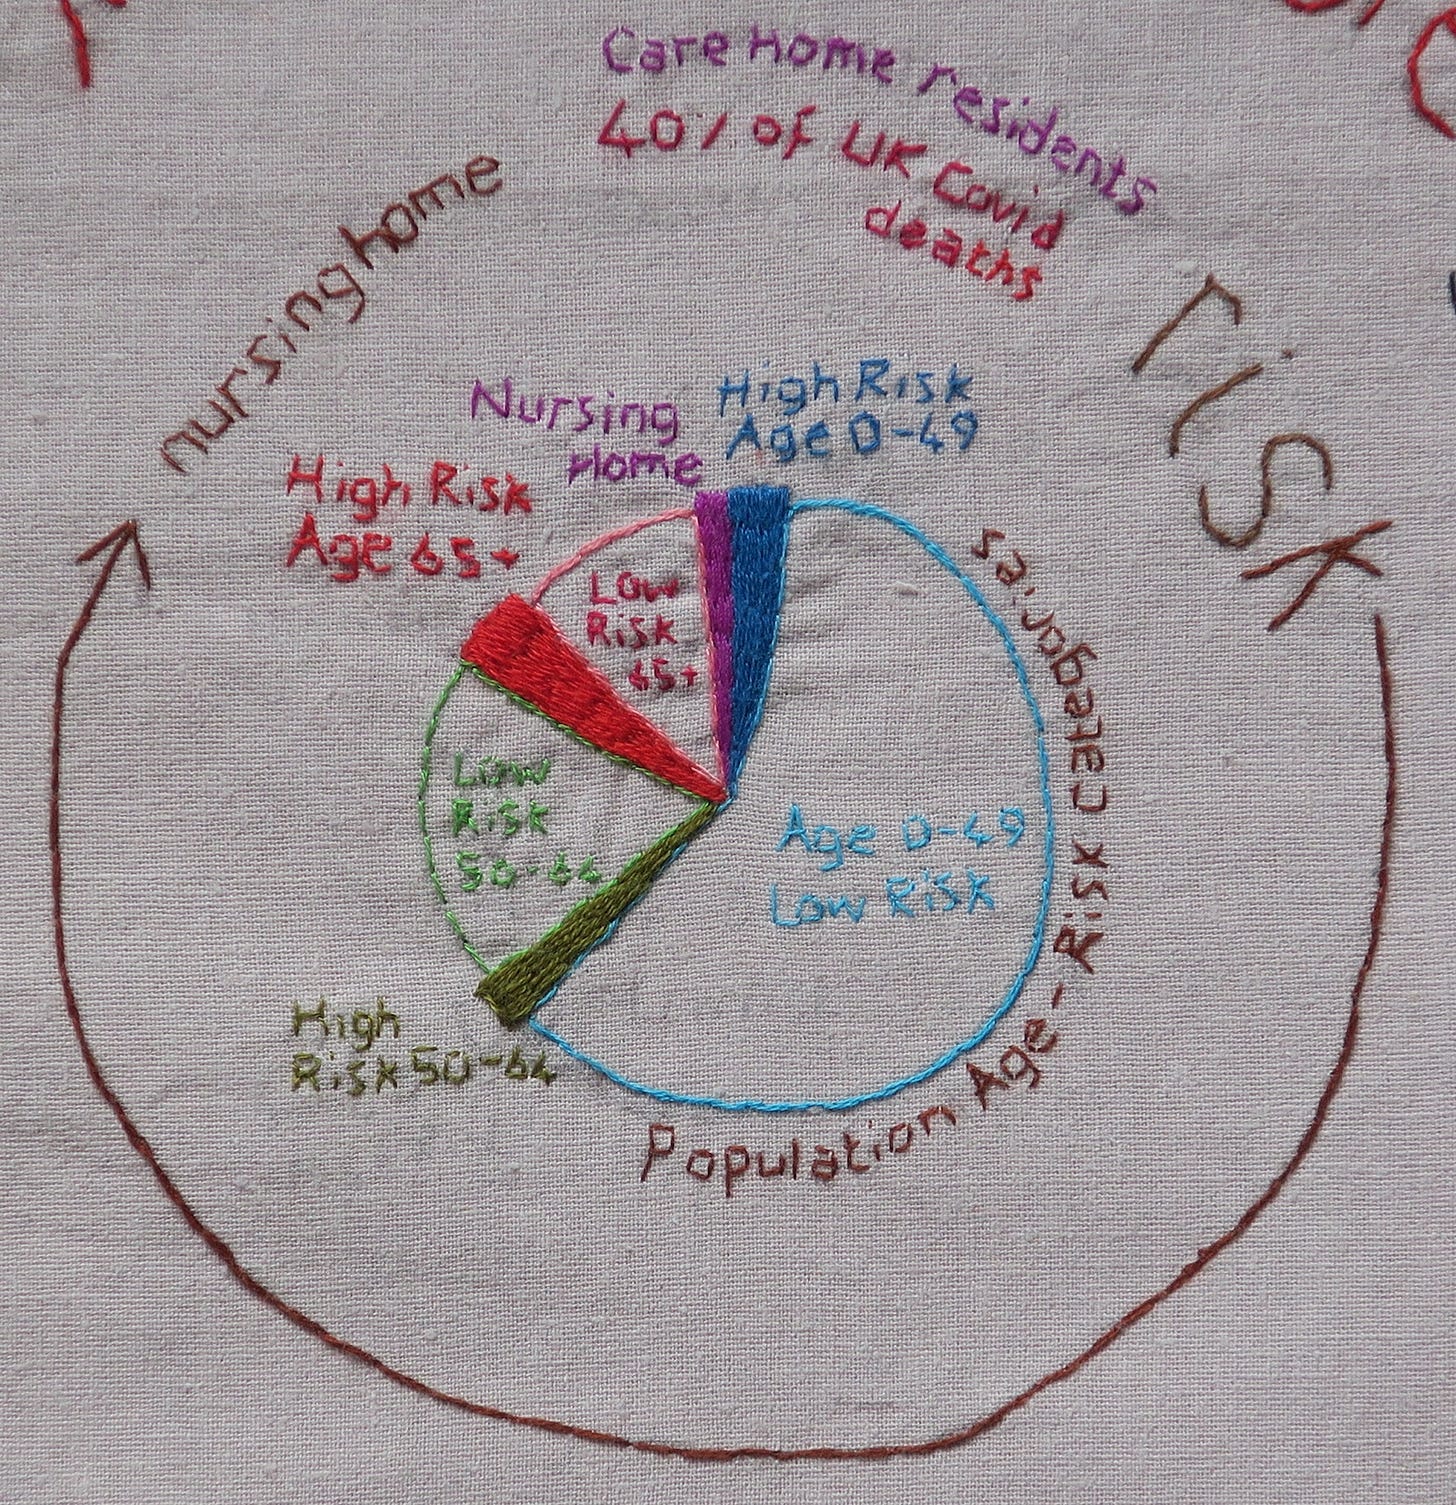 Care Home residents
40% of UK Covid
deaths
nursing home
risk
Nursing
Home
High Risk
Age 0-49
High Risk
Age 65+
Low
Risk
65+
Low
Risk
50-64
Age 0-49
Low Risk
High
Risk 50-64
Population Age - Risk categories